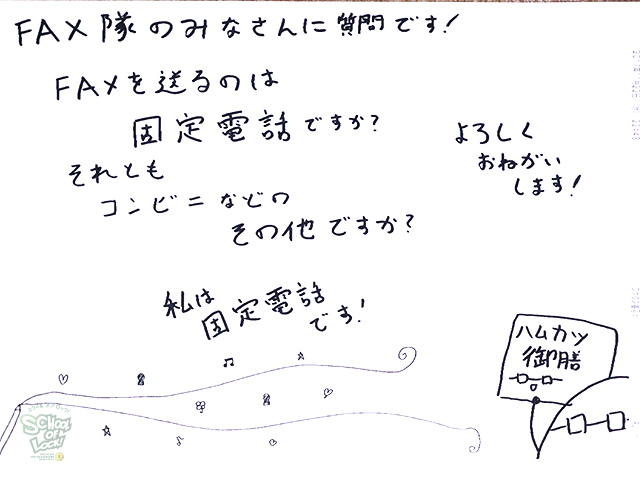 FAX隊のみなさんに質問です!
FAXを送るのは
固定電話ですか?
それとも
コンビニなどの
その他ですか?
よろしく
おねがい
します!
私は
固定電話
です!
ハムカツ
御膳
SCHOOL
OF
LOCK!